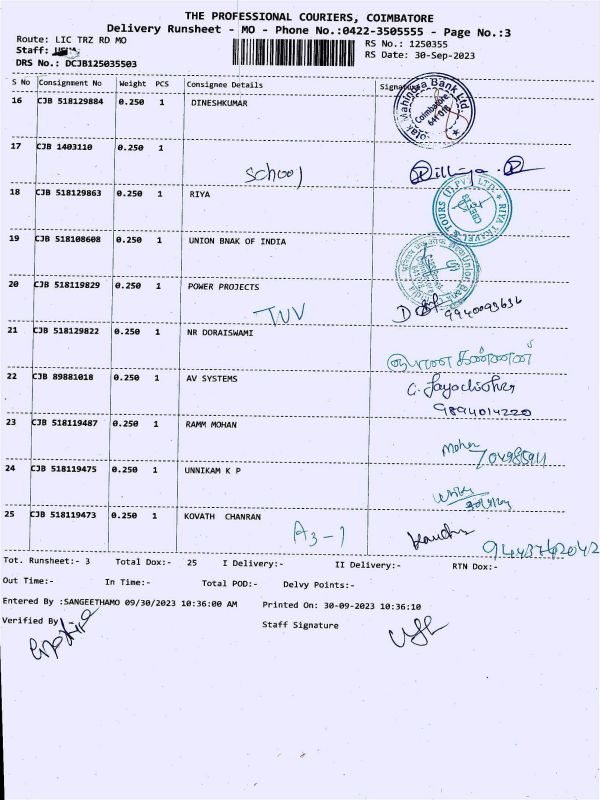 THE PROFESSIONAL COURIERS, COIMBATORE
Delivery Runsheet - MO - Phone No.:0422-3505555 - Page No.:3
Route: LIC TRZ RD MO
RS No.: 1250355
Staff:
RS Date: 30-Sep-2023
DRS No.: DCJB125035503
S No Consignment No Weight PCS Consignee Details Signature
16 CJB 518129884 0.250 1 DINESHKUMAR
Mahindra Bank Ltd.
Coimbatore
641 018
17 CJB 1403110 0.250 1
School
18 CJB 518129863 0.250 1 RIYA
RIYA TRAVEL & TOURS (I) PVT. LTD.
CBE-18
19 CJB 518108608 0.250 1 UNION BNAK OF INDIA
Union Bank
20 CJB 518119829 0.250 1 POWER PROJECTS
TUV
9940093636
21 CJB 518129822 0.250 1 NR DORAISWAMI
22 CJB 89881018 0.250 1 AV SYSTEMS
9894014220
23 CJB 518119487 0.250 1 RAMM MOHAN
Mohan
24 CJB 518119475 0.250 1 UNNIKAM K P
25 CJB 518119473 0.250 1 KOVATH CHANRAN
A3-1
9443762042
Tot. Runsheet:- 3 Total Dox:- 25 I Delivery:- II Delivery:- RTN Dox:-
Out Time:- In Time:- Total POD:- Delvy Points:-
Entered By :SANGEETHAMO 09/30/2023 10:36:00 AM Printed On: 30-09-2023 10:36:10
Verified By
Staff Signature